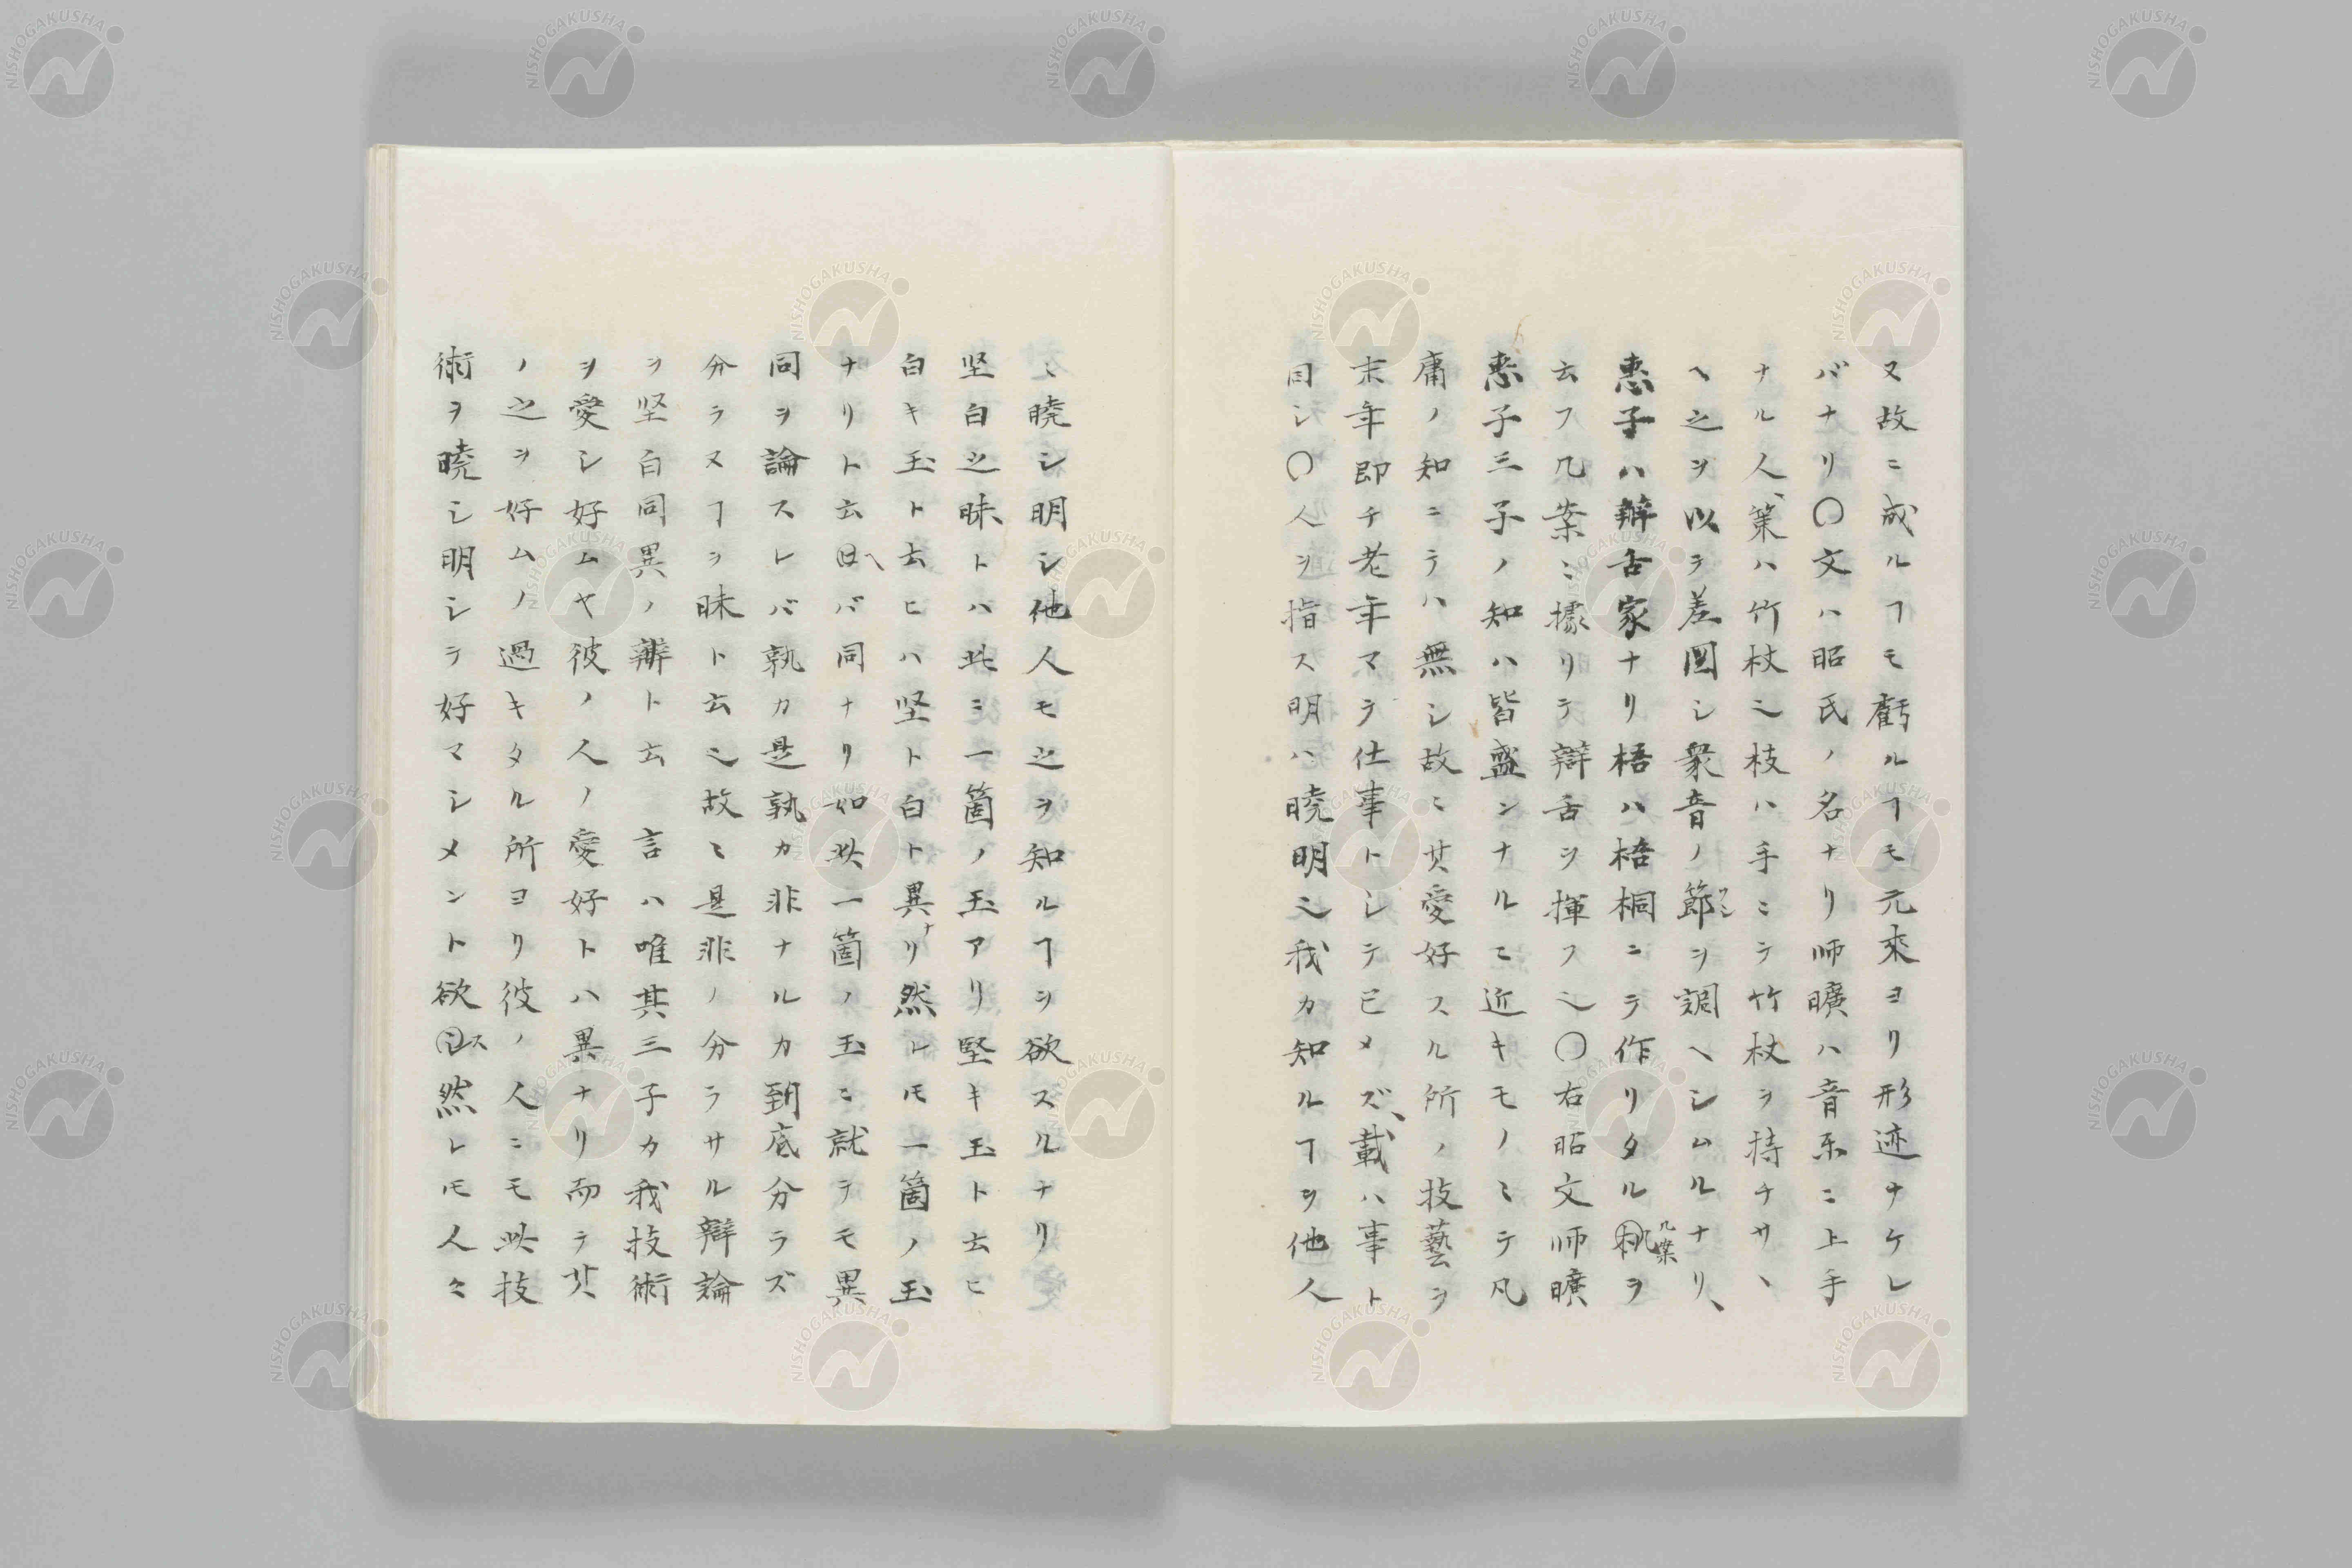 又故ニ成ルヿモ虧ルヿモ元來ヨリ形迹ナケレ
バナリ〇文ハ昭氏ノ名ナリ師曠ハ音乐ニ上手
ナル人、策ハ竹杖〻枝ハ手ニテ竹杖ヲ持チサヽ
ヘ之ヲ以テ差圖シ衆音ノ節ヲ調ヘシムルナリ、
惠子ハ辯舌家ナリ梧ハ梧桐ニテ作リタル几案ヲ
云フ几案ニ據リテ辯舌ヲ揮フ〻〇右昭文师曠
惠子三子ノ知ハ皆盛ンナルニ近キモノミテ凡
庸ノ知ニテハ無シ故ニ其愛好スル所ノ技藝ヲ
末年即チ老年マテ仕事トシテ已メズ、載ハ事ト
同シ〇人ヲ指ス明ハ暁明〻我カ知ルヿヲ他人
ニ暁シ明シ他人モ之ヲ知ルヿヲ欲スルナリ
坚白之昧トハ此ニ一箇ノ玉アリ堅キ玉ト云ヒ
白キ玉ト云ヒハ坚ト白ト異ナリ然レ𪜈一箇ノ玉
ナリト云ヘバ同ナリ如此一箇ノ玉ニ就テモ異
同ヲ論スレバ孰カ是孰カ非ナルカ到底分ラズ
分ラヌヿヲ昧ト云〻故ニ是非ノ分ラサル辯論
ヲ坚白同異ノ辯ト云 言ハ唯其三子カ我技術
ヲ愛シ好ムヤ彼ノ人ノ愛好トハ異ナリ而テ其
ノ之ヲ好ムノ過キタル所ヨリ彼ノ人ニモ此技
術ヲ暁シ明シテ好マシメント欲ス然レ𪜈人々
NISHOGAKUSHA